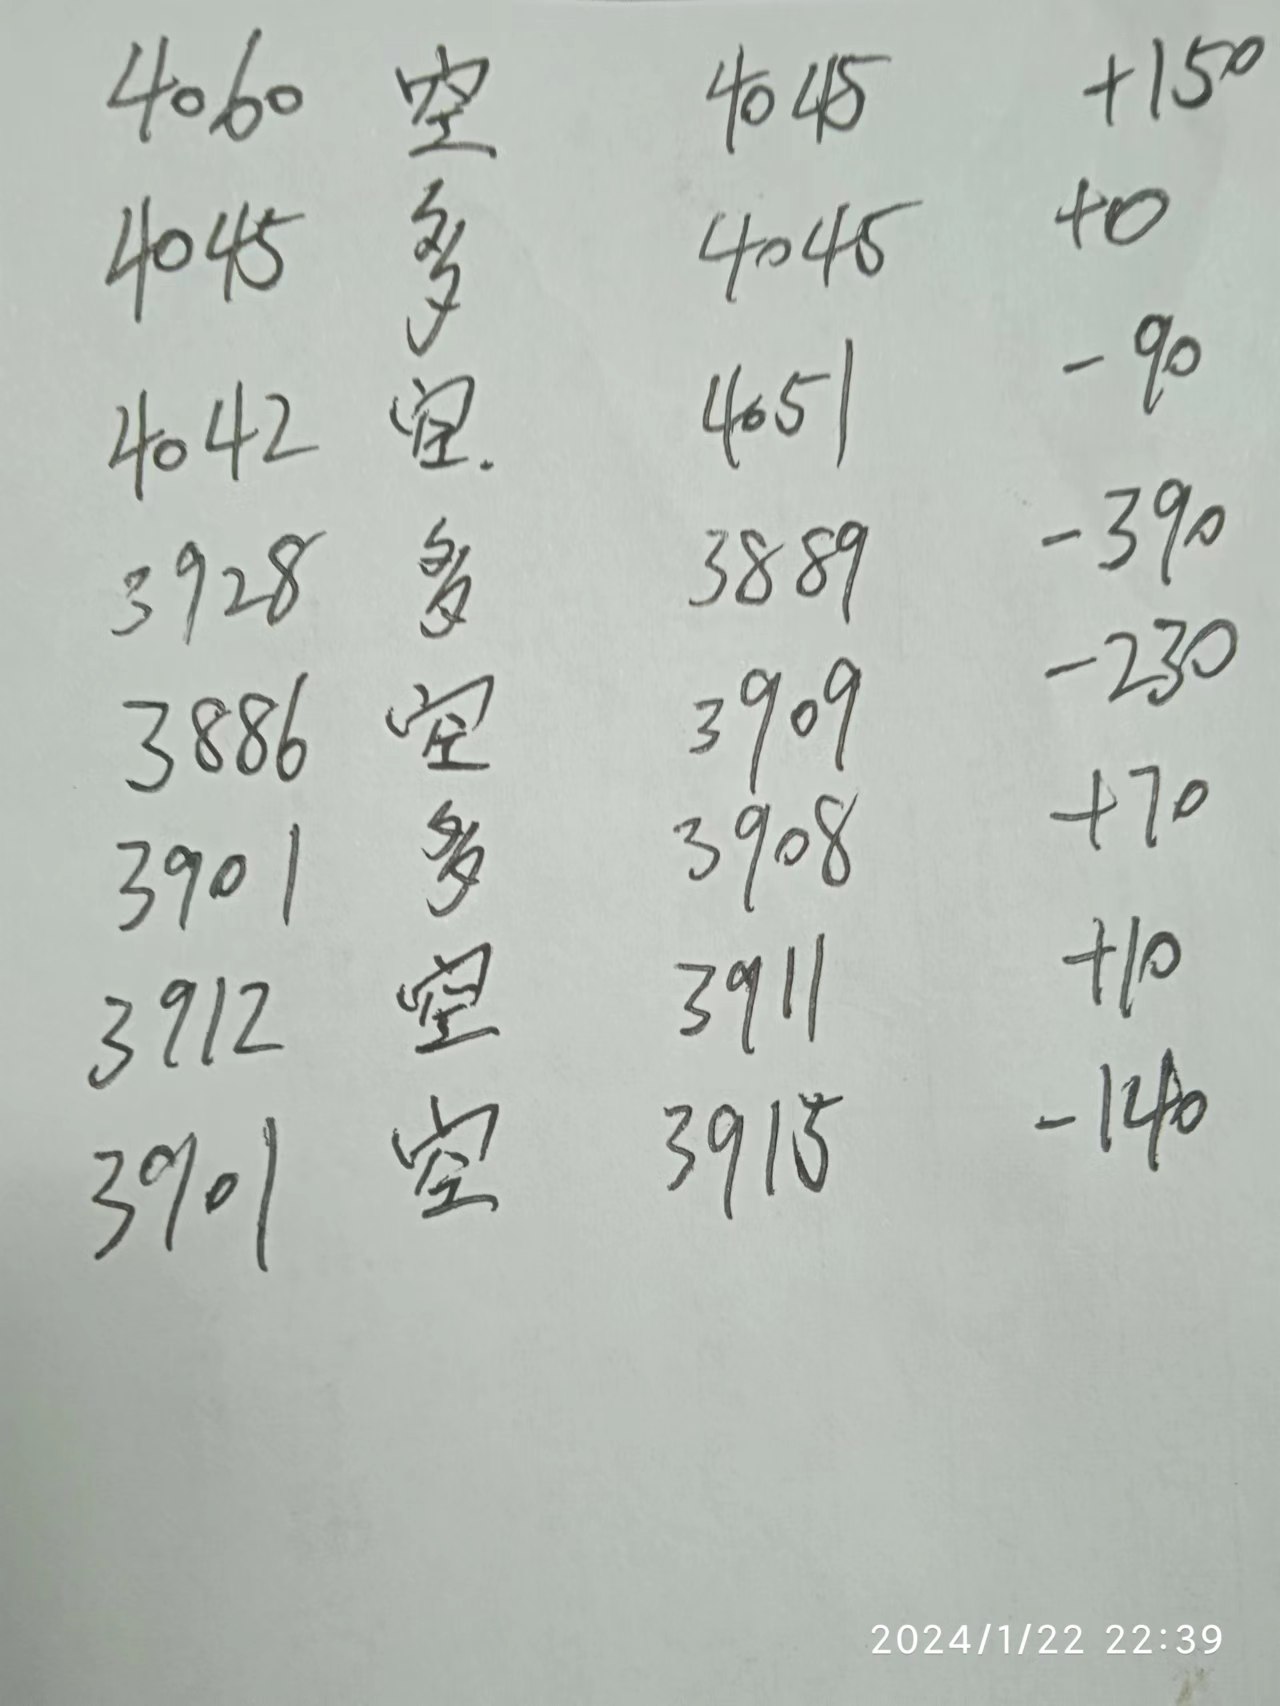 4060 空 4045 +150
4045 多 4045 +0
4042 空. 4051 -90
3928 多 3889 -390
3886 空 3909 -230
3901 多 3908 +70
3912 空 3911 +10
3901 空 3915 -140
2024/1/22 22:39